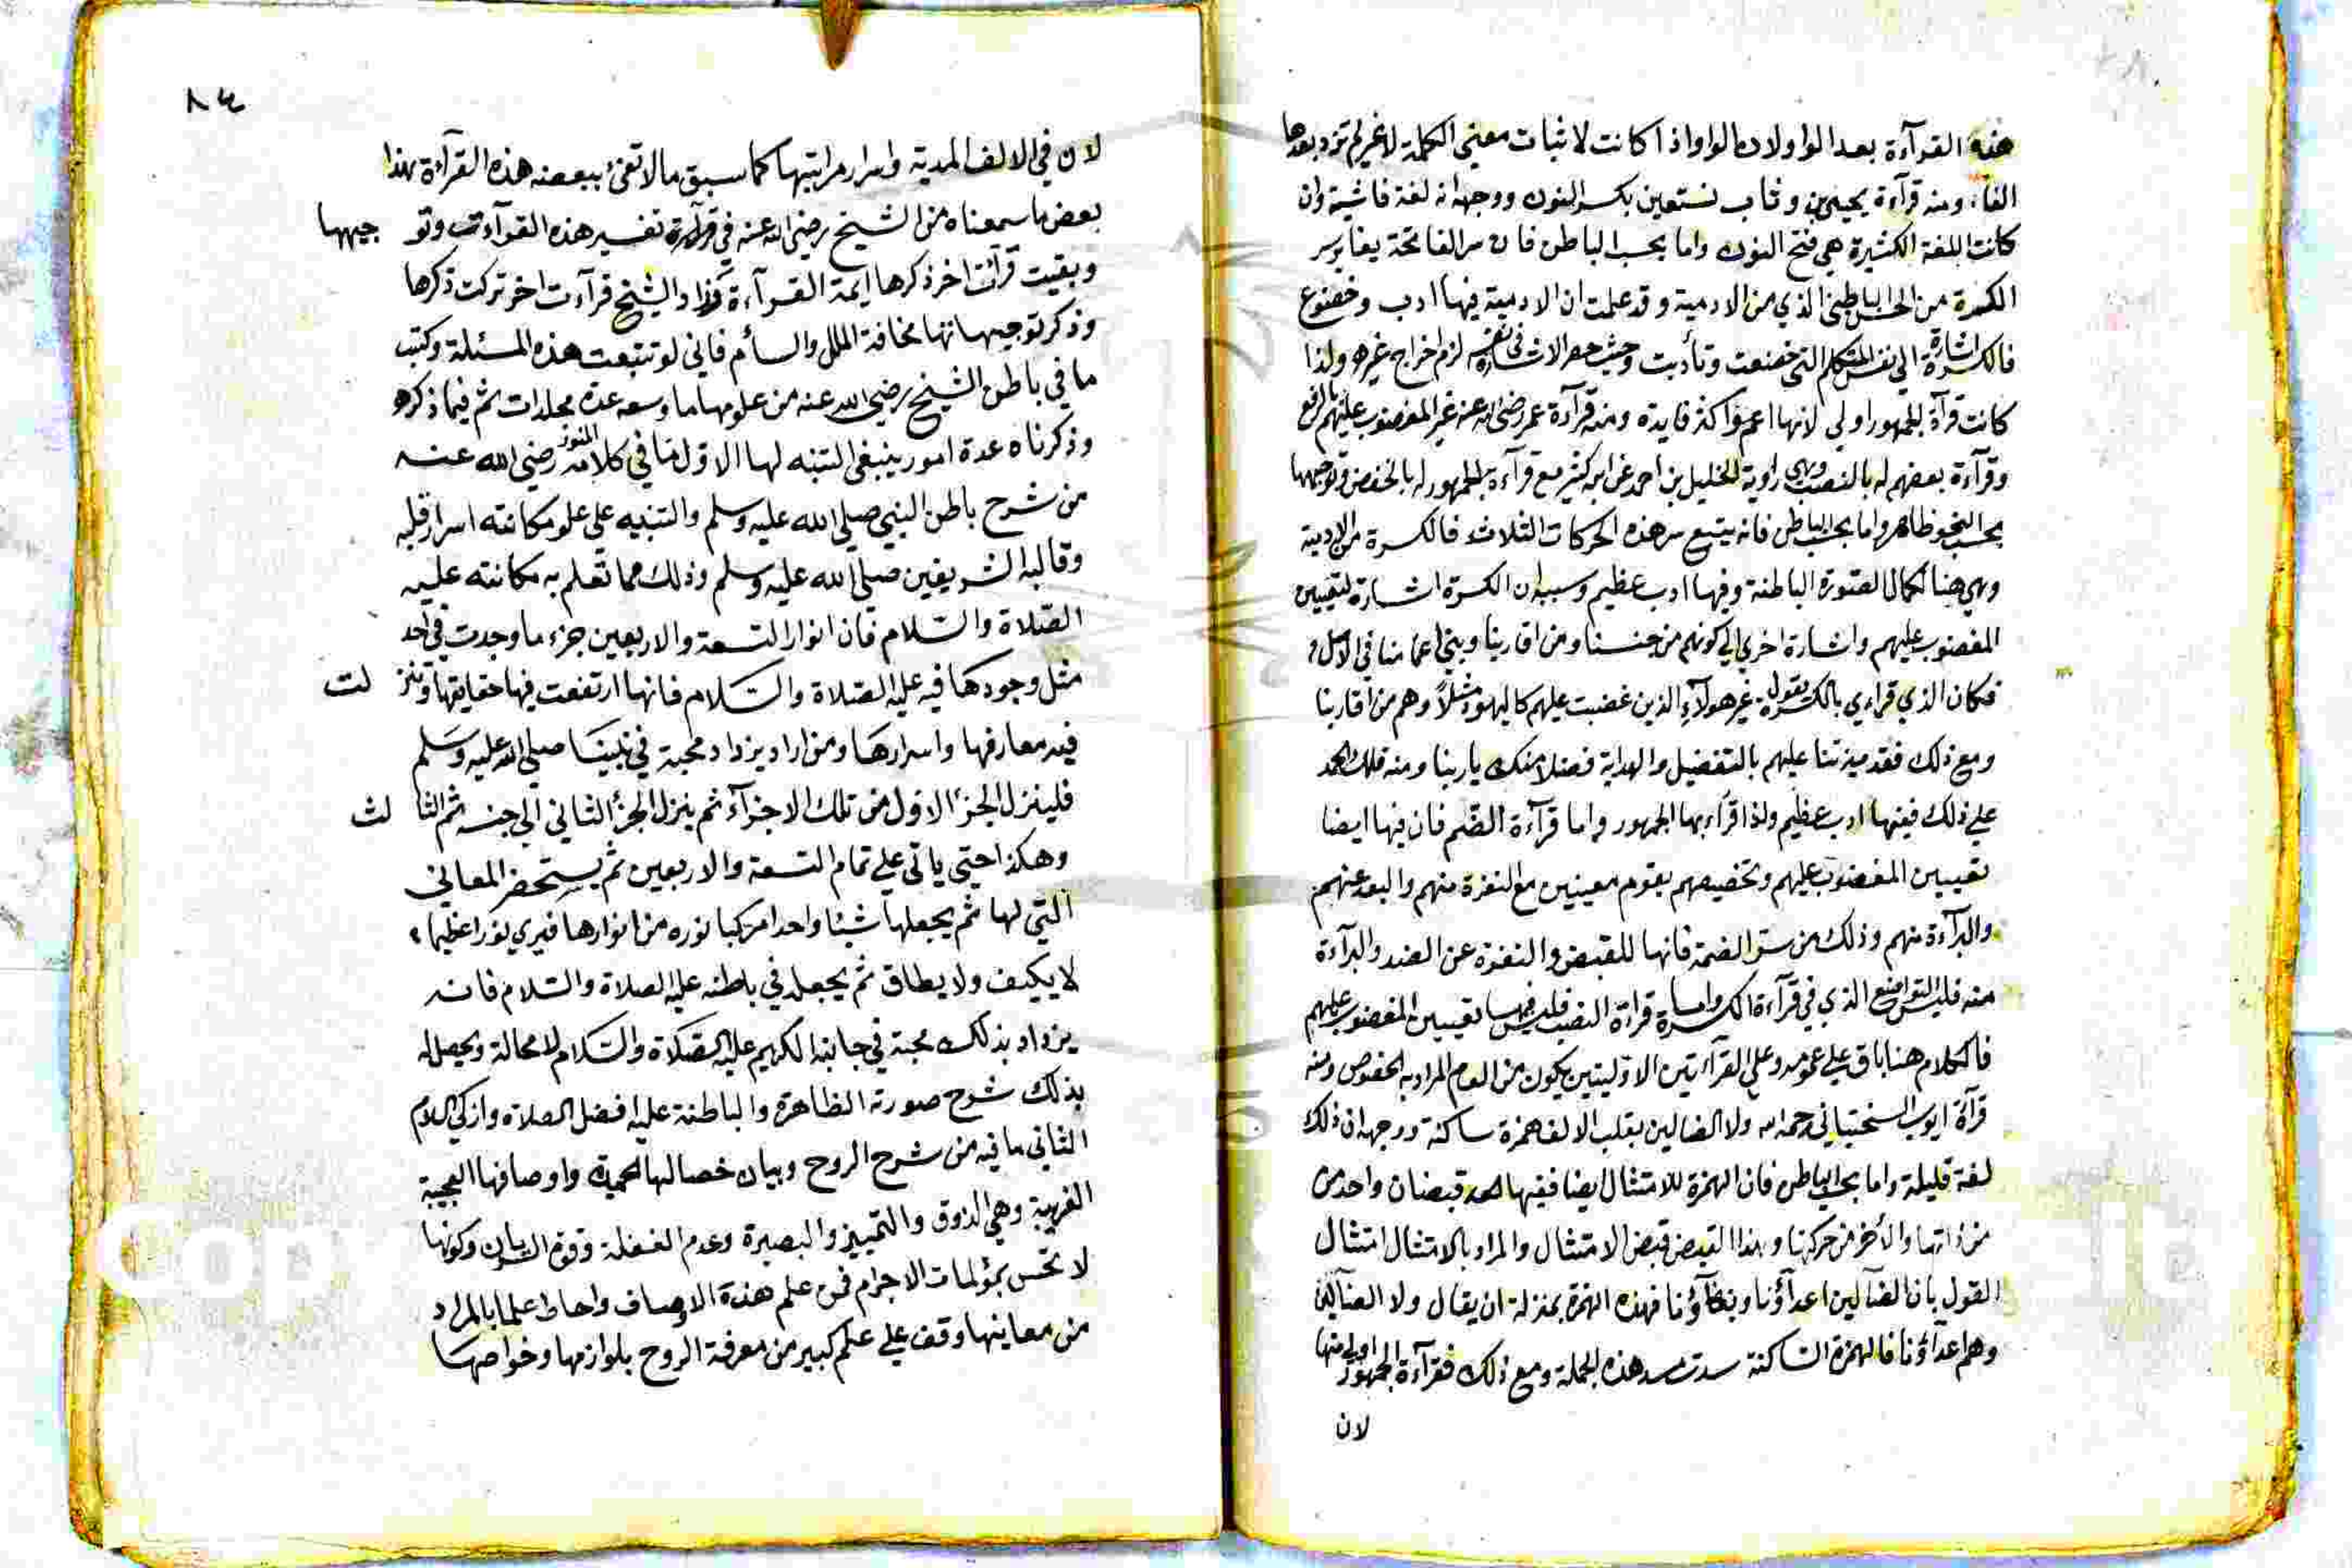 هذه القرآءة بعد الواو لان الواو اذا كانت لاثبات معنى الكلمة لا غير لم تزد بعدها
الفا، ومنه قرآءة يحيى بن وثاب نستعين بكسر النون ووجهه انه لغة فاشية وان
كانت اللغة الكثيرة هي فتح النون واما بحسب الباطن فان سر الفاتحة يغاير سر
الكسرة من الحس الباطني الذي من الادمية وقد علمت ان الادمية فيها ادب وخضوع
فالكسرة اشارة الي نفس المتكلم التي خضعت وتأدبت وحيث حصر الاشارة في نفسه لزم اخراج غيره ولذا
كانت قرآة الجمهور اولي لانها اعم واكثر فايدة ومنه قرآءة عمر رضي الله عنه غير المغضوب عليهم بالرفع
وقرآءة بعضهم له بالنصب وهي راوية الخليل بن احمد عن ابن كثير مع قرآءة الجمهور له بالخفض وتوجيهها
بحسب النحو ظاهر واما بحسب الباطن فانه يتبع سر هذه الحركات الثلاث فالكسرة من الادمية
وهي هنا لكمال الصورة الباطنة وفيها ادب عظيم وسببه ان الكسرة اشارة لتعيين
المغضوب عليهم واشارة اخري الي كونهم من جنسنا ومن اقاربنا وبني اعمامنا في الاصل
فكان الذي قراءي بالكسرة يقول غير هولآء الذين غضبت عليهم كاليهود مثلاً وهم من اقاربنا
ومع ذلك فقد ميزتنا عليهم بالتفضيل والهداية فضلا منك ياربنا ومنه فلك الحمد
علي ذلك ففيها ادب عظيم ولذا قرآء بها الجمهور واما قرآءة الضم فان فيها ايضا
تعيين المغضوب عليهم وتخصيصهم بقوم معينين مع النفرة منهم والبعد عنهم
والبرآءة منهم وذلك من سر الضمة فانها للقبض والنفرة عن الضد والبرآءة
منه فليس التواضع الذي في قرآءة الكسرة واما قراة النصب فليس فيها تعيين المغضوب عليهم
فالكلام هنا باق علي عمومه وعلي القرآءتين الاوليتين يكون من العام المراد به الخصوص ومنه
قرآة ايوب السختياني رحمه الله ولا الضالين بقلب الالف همزة ساكنة ووجهه ان ذلك
لغة قليلة واما بحسب الباطن فان الهمزة للامتثال ايضا ففيها قبضان واحد من
من ذاتها والأخر من حركتها وهذا القبض قبض الامتثال والمراد بالامتثال امتثال
القول بان الضآلين اعدآؤنا وبغضآؤنا فهذه الهمزة بمنزلة ان يقال ولا الضآلين
وهم اعدآؤنا فالهمزة الساكنة سدت مسد هذه الجملة ومع ذلك فقرآءة الجمهور اولي منها
لان
٨٤
لان في الالف المدية واسرار مراتبها كما سبق ما لا تفي ببعضه هذه القرآءة هذا
بعض ما سمعناه من الشيخ رضي الله عنه في تفسير هذه القرآءت وتوجيهها
وبقيت قرآت اخر ذكرها ايمة القرآءة وزاد الشيخ قرآءت اخر تركت ذكرها
وذكر توجيهاتها مخافة الملل والسأم فاني لو تتبعت هذه المسئلة وكتبت
ما في باطن الشيخ رضي الله عنه من علومها ما وسعه عدة مجلدات ثم فيما ذكره
وذكرناه عدة امور ينبغي التنبه لها الاول ما في كلامه المنور رضي الله عنه
من شرح باطن النبي صلي الله عليه وسلم والتنبيه علي علو مكانته اسرار قلبه
وقالبه الشريفين صلي الله عليه وسلم وذلك مما تعلم به مكانته عليه
الصلاة والسلام فان انوار التسعة والاربعين جزء ما وجدت في احد
مثل وجودها فيه عليه الصلاة والسلام فانها ارتفعت فيها حقايقها وتنزلت
فيه معارفها واسرارها ومن اراد يزداد محبة في نبينا صلي الله عليه وسلم
فلينزل الجزء الاول من تلك الاجزآء ثم ينزل الجزء الثاني الي جنبه ثم الثالث
وهكذا حتي ياتي علي تمام التسعة والاربعين ثم يستحضر المعاني
التي لها ثم يجعلها شيئا واحدا مركبا نوره من انوارها فيري نورا عظيما
لا يكيف ولا يطاق ثم يجعله في باطنه عليه الصلاة والسلام فانه
يزداد بذلك محبة في جانبه الكريم عليه الصلاة والسلام لا محالة ويحصل له
بذلك شرح صورته الظاهرة والباطنة عليه افضل الصلاة وازكي السلام
الثاني ما فيه من شرح الروح وبيان خصالها الحميدة واوصافها العجيبة
الغريبة وهي الذوق والتمييز والبصيرة وعدم الغفلة وقوة السريان وكونها
لا تحس بمؤلمات الاجرام فمن علم هذه الاوصاف واحاط علما بالمراد
من معاينها وقف علي علم كبير من معرفة الروح بلوازمها وخواصها